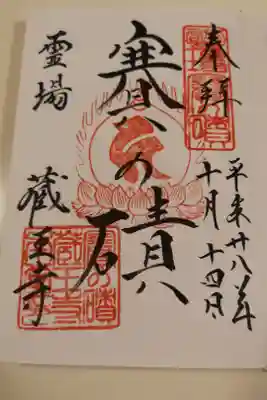 奉拝
平成廿八年
十月十四日
賽の磧
霊場
蔵王寺